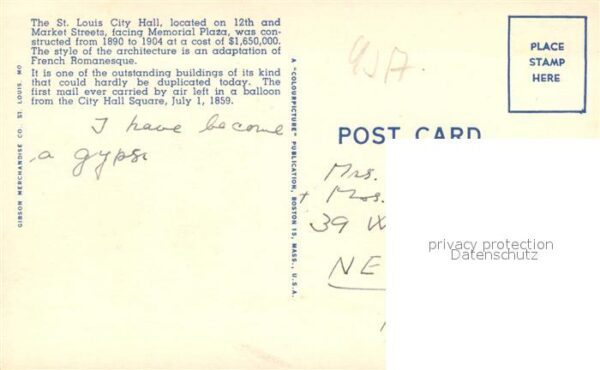 The St. Louis City Hall, located on 12th and
Market Streets, facing Memorial Plaza, was con-
structed from 1890 to 1904 at a cost of $1,650,000.
The style of the architecture is an adaptation of
French Romanesque.
It is one of the outstanding buildings of its kind
that could hardly be duplicated today. The
first mail ever carried by air left in a balloon
from the City Hall Square, July 1, 1859.
I have become
a gypsi
GIBSON MERCHANDISE CO. ST. LOUIS MO
A "COLOURPICTURE" PUBLICATION, BOSTON 15, MASS., U.S.A.
PLACE
STAMP
HERE
POST CARD
Mrs.
+ Mos.
39 W
NE
privacy protection
Datenschutz